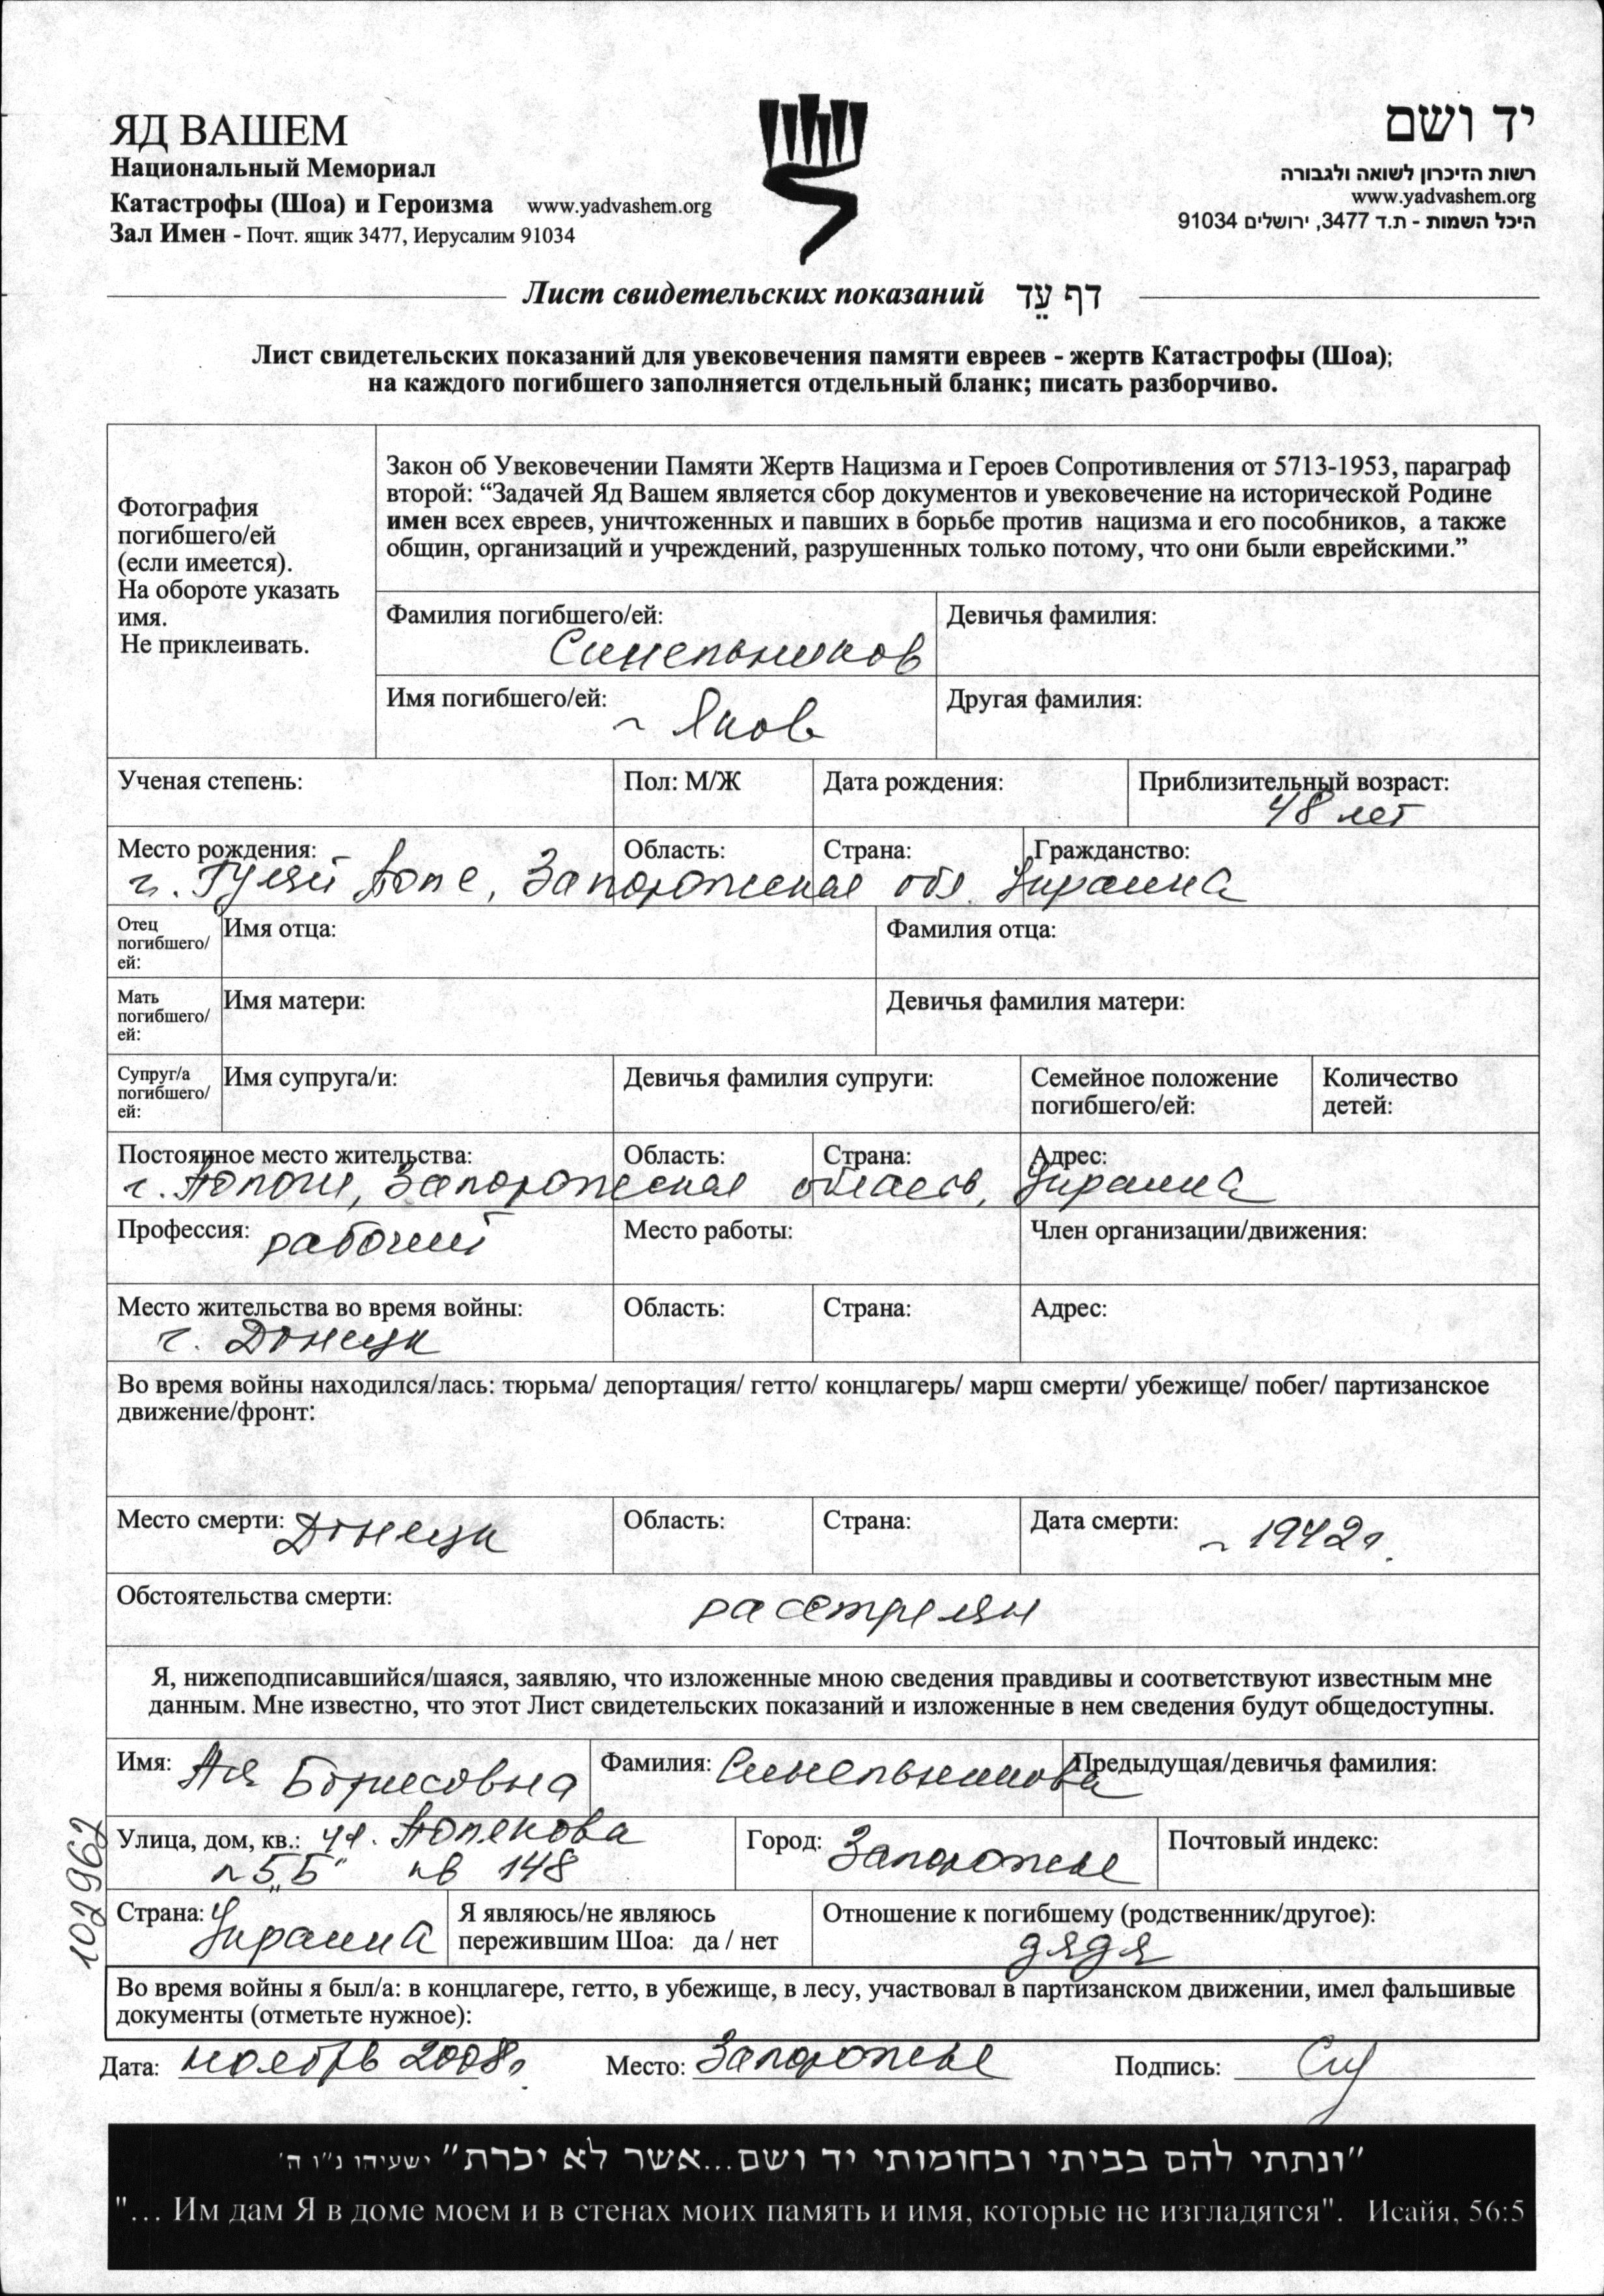 ЯД ВАШЕМ
Национальный Мемориал
Катастрофы (Шоа) и Героизма www.yadvashem.org
Зал Имен - Почт. ящик 3477, Иерусалим 91034
יד ושם
רשות הזיכרון לשואה ולגבורה
www.yadvashem.org
היכל השמות - ת.ד 3477, ירושלים 91034
Лист свидетельских показаний דף עֵד
Лист свидетельских показаний для увековечения памяти евреев - жертв Катастрофы (Шоа);
на каждого погибшего заполняется отдельный бланк; писать разборчиво.
Фотография
погибшего/ей
(если имеется).
На обороте указать
имя.
Не приклеивать.
Закон об Увековечении Памяти Жертв Нацизма и Героев Сопротивления от 5713-1953, параграф
второй: “Задачей Яд Вашем является сбор документов и увековечение на исторической Родине
имен всех евреев, уничтоженных и павших в борьбе против нацизма и его пособников, а также
общин, организаций и учреждений, разрушенных только потому, что они были еврейскими.”
Фамилия погибшего/ей: Девичья фамилия:
Синельников
Имя погибшего/ей: ~ Яков Другая фамилия:
Ученая степень: Пол: М/Ж Дата рождения: Приблизительный возраст:
48 лет
Место рождения: Область: Страна: Гражданство:
г. Гуляй Поле, Запорожская обл. Украина
Отец
погибшего/
ей:
Имя отца: Фамилия отца:
Мать
погибшего/
ей:
Имя матери: Девичья фамилия матери:
Супруг/а
погибшего/
ей:
Имя супруга/и: Девичья фамилия супруги: Семейное положение
погибшего/ей:
Количество
детей:
Постоянное место жительства: Область: Страна: Адрес:
г. Пологи, Запорожская область, Украина
Профессия: рабочий Место работы: Член организации/движения:
Место жительства во время войны: Область: Страна: Адрес:
г. Донецк
Во время войны находился/лась: тюрьма/ депортация/ гетто/ концлагерь/ марш смерти/ убежище/ побег/ партизанское
движение/фронт:
Место смерти: Донецк Область: Страна: Дата смерти: ~ 1942г.
Обстоятельства смерти: расстрелян
Я, нижеподписавшийся/шаяся, заявляю, что изложенные мною сведения правдивы и соответствуют известным мне
данным. Мне известно, что этот Лист свидетельских показаний и изложенные в нем сведения будут общедоступны.
Имя: Ася Борисовна Фамилия: Синельникова Предыдущая/девичья фамилия:
Улица, дом, кв.: ул. Полякова Город: Запорожье Почтовый индекс:
5„Б“ кв 148
Страна: Украина Я являюсь/не являюсь
пережившим Шоа: да / нет
Отношение к погибшему (родственник/другое):
дядя
102962
Во время войны я был/а: в концлагере, гетто, в убежище, в лесу, участвовал в партизанском движении, имел фальшивые
документы (отметьте нужное):
Дата: ноябрь 2008г. Место: Запорожье Подпись:
"ונתתי להם בביתי ובחומותי יד ושם...אשר לא יכרת" ישעיהו נ"ו ה'
"... Им дам Я в доме моем и в стенах моих память и имя, которые не изгладятся". Исайя, 56:5